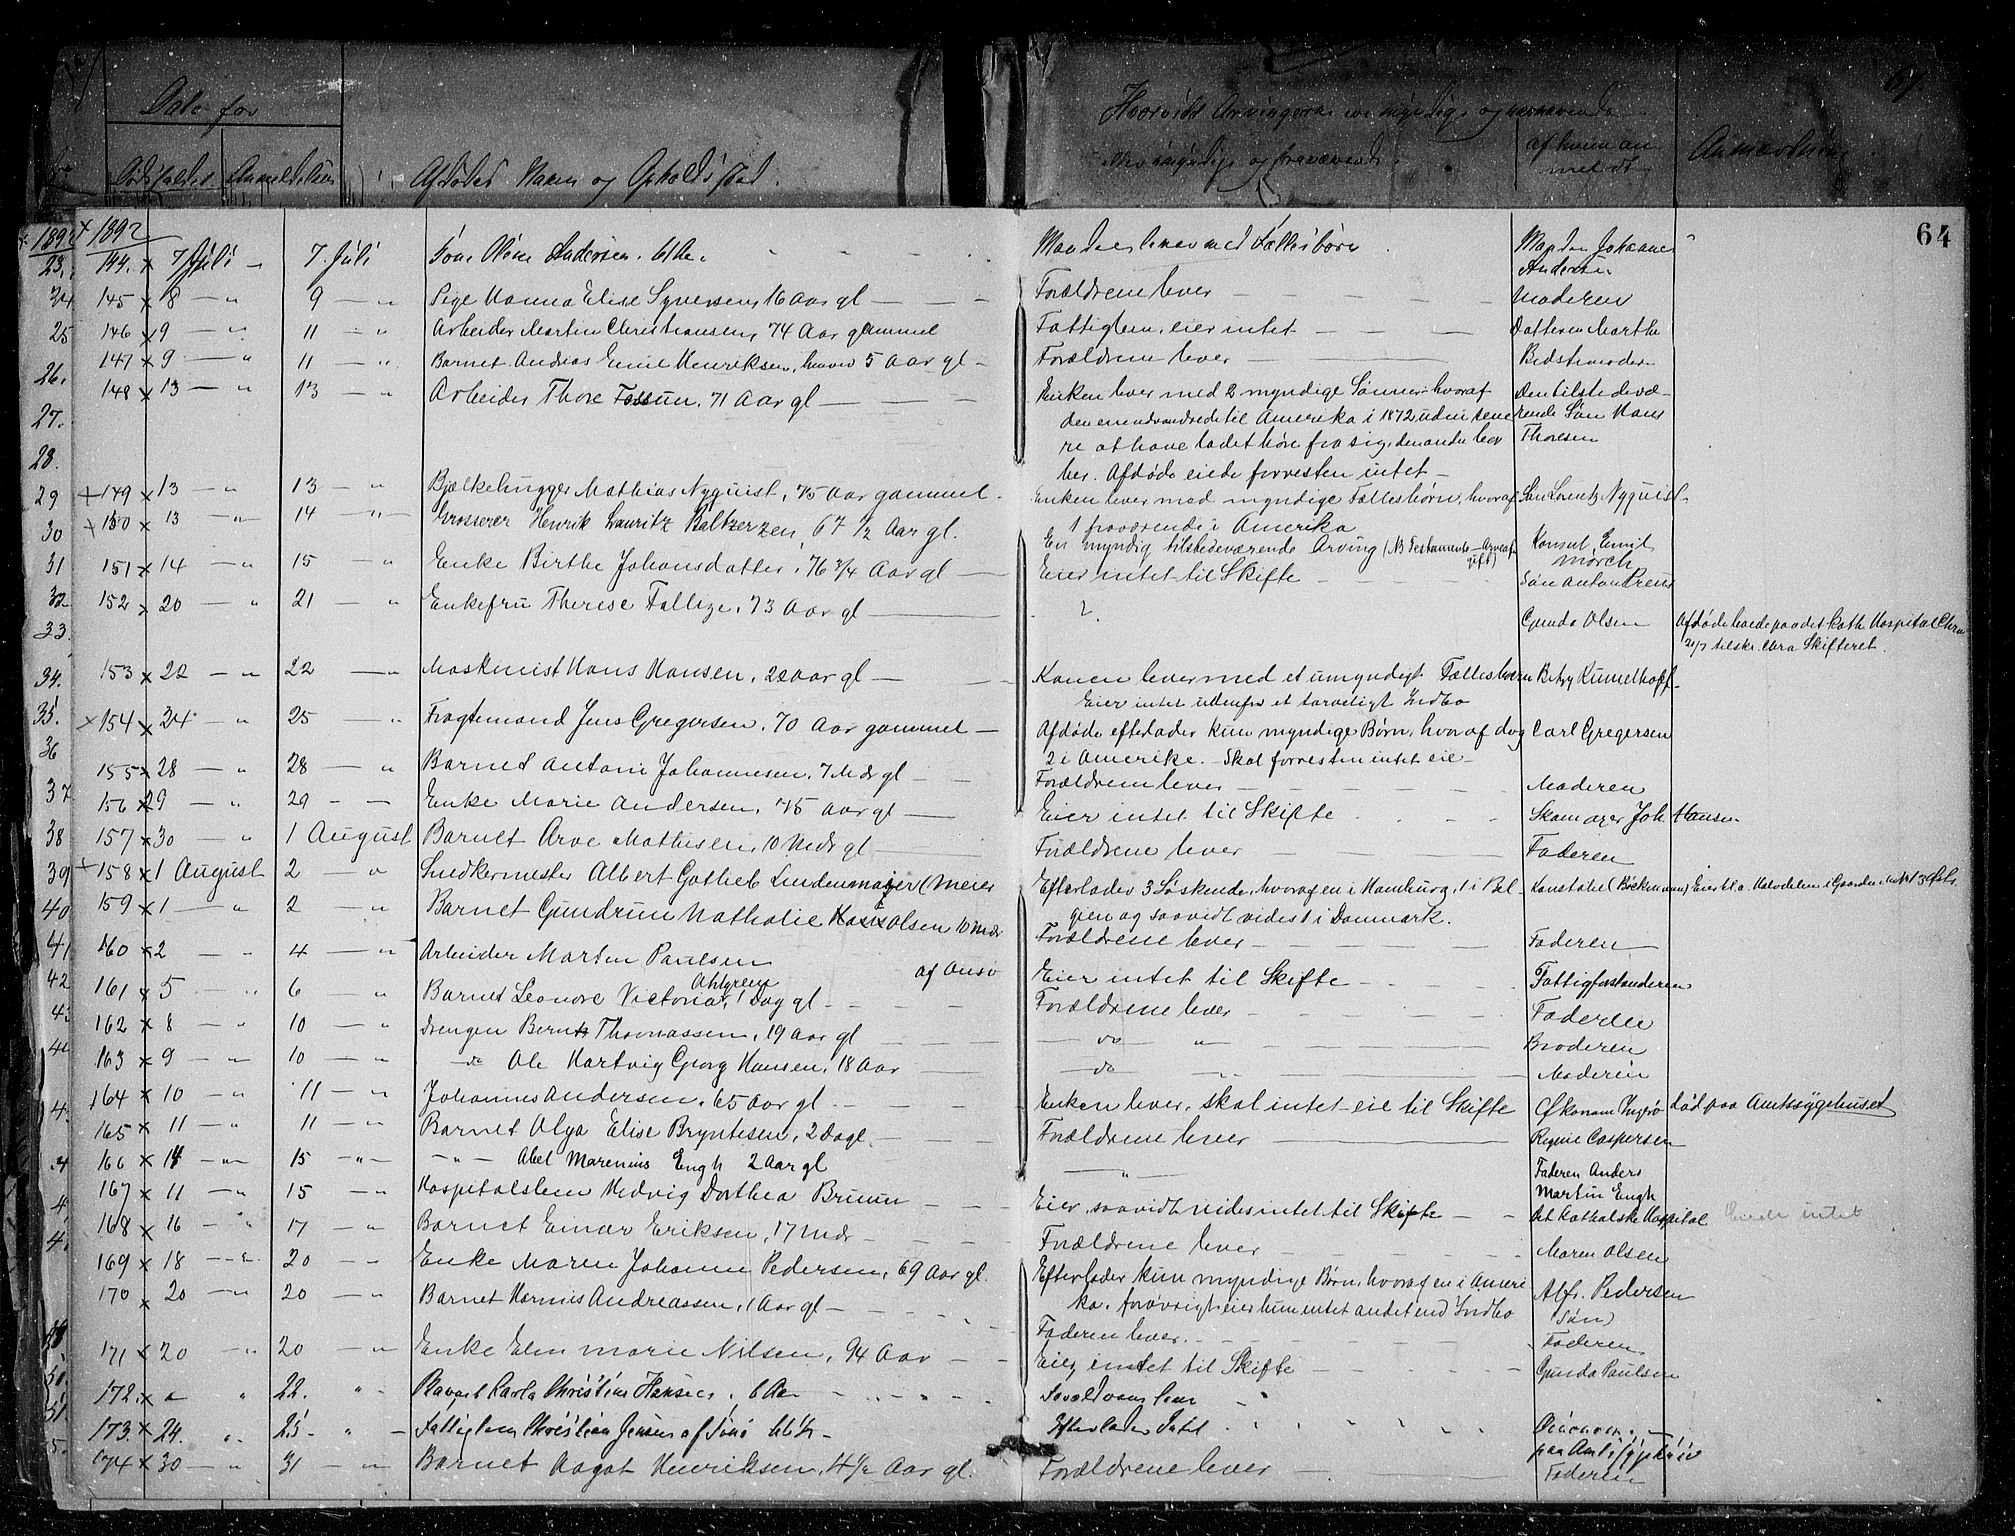 Date for
Dødsfaldet Anmeldelsen Afdødes Navn og Opholdssted.
Hvorvidt Arvingerne ere myndige og nærværende
eller umyndige og fraværende.
af hvem an-
meldt
Anmærkning
64
1892 1892
23. 144. x 7 Juli 7. Juli Kone Oline Andersen. 61 Aar Manden lever med Fællesbørn. Manden Johannes
Andersen
24 145 x 8 — " 9 — " Pige Hanna Elise Syversen, 16 Aar gl — Forældrene lever — Moderen
25 146 x 9 — " 11 — " Arbeider Martin Christiansen, 74 Aar gammel Fattiglem, eier intet — Datteren Marthe
26. 147 x 9 — " 11 — " Barnet Andreas Emil Henriksen, 5 Aar gl — Forældrene lever — Bedstemoder
27. 148 x 13 — " 13 — " Arbeider Thore Fossum, 71 Aar gl — Enken lever med 2 myndige Sønner hvoraf Den tilstedevæ-
28. den ene udvandrede til Amerika i 1872 uden sene rende Søn Hans
re at have ladet høre fra sig, den anden bor Thoresen
her. Afdøde eiede forresten intet —
29 + 149 x 13 — " 13 — " Bjælkehugger Mathias Nyquist, 75 Aar gammel — Enken lever med myndige Fællesbørn, hvoraf Søn Lorentz Nyquist
1 fraværende i Amerika
30 + 150 x 13 — " 14 — " Grosserer Henrik Lauritz Baltzerzen, 67 1/2 Aar gl. En myndig tilstedeværende Arving (NB Testamente — Arveaf- Konsul Emil
gift) Mørch
31 151 x 14 — " 15 — " Enke Birthe Johansdatter, 76 3/4 Aar gl — Eier intet til Skifte — Søn Anton
32 152 x 20 — " 21 — " Enkefru Therese Fallize, 73 Aar gl — ? Gunda Olsen Afdøde boede paa det kath Hospital Chra
33. tilskr. Chra Skifteret.
34. 153 x 22 — " 22 — " Maskinist Hans Hansen, 22 Aar gl — Konen lever med et umyndigt Fællesbarn Betzy Kummelhoff
Eier intet udenfor et tarveligt Indbo
35. x 154 x 24 — " 25 — " Fragtemand Jens Gregersen, 70 Aar gammel — Afdøde efterlader kun myndige Børn, hvoraf dog Carl Gregersen
36 2 i Amerika. — Skal forresten intet eie —
155 x 28 — " 28 — " Barnet Antoni Johannesen, 7 Mdr gl — Forældrene lever — Moderen
37. 156 x 29 — " 29 — — Enke Marie Andersen, 75 Aar gl — Eier intet til Skifte — Skomager Joh Hansen
38 157 x 30 — " 1 August Barnet Arve Mathisen, 10 Mdr gl — Forældrene lever — Faderen
39 + 158 x 1 August 2 — " Snedkermester Albert Gotlieb Lindenmaijer (Meier Efterlader 3 Søskende, hvoraf en i Hamburg, 1 i Bel- Konstabel (Bøckmann) Eier bl.a. Halvdelen i Gaarden
gien og saavidt vides 1 i Danmark.
40 159 x 1 — " 2 — " Barnet Gundrun Nathalie Olsen 10 Mdr Forældrene lever — Faderen
41 160 x 2 — " 4 — " Arbeider Morten Paulsen af Onsø Eier intet til Skifte — Fattigforstanderen
42 161 x 5 — " 6 — " Barnet Leonore Victoria Ahlgren, 1 Dag gl — Forældrene lever — Faderen
43 162 x 8 — " 10 — " Drengen Bernt Thomassen, 19 Aar gl — do — " — Broderen
163 x 9 — " 10 — " — do Ole Hartvig Georg Hansen, 18 Aar — do — " — Moderen
164 x 10 — " 11 — " Johannes Andersen, 65 Aar gl — Enken lever, skal intet eie til Skifte Økonom Ingerø Død paa Amtssygehuset
165 x 11 — " 11 — " Barnet Olga Elise Bryntesen, 2 Da gl — Forældrene lever — Regine Caspersen
166 x 14 — " — 15 — " — — " — Abel Marenius Engh 2 Aar gl — " — Faderen Anders
Martin Engh
167 x 11 — " 15 — " Hospitalslem Hedvig Dorthea Bruun — Eier saavidt vides intet til Skifte — Det Katholske Hospital Eiede intet
168 x 16 — " 17 — " Barnet Einar Eriksen, 17 Mdr — Forældrene lever — Maren Olsen
169 x 18 — " 20 — " Enke Maren Johanne Pedersen, 69 Aar gl. Efterlader kun myndige Børn, hvoraf en i Ameri Alfr. Pedersen
ka. forøvrigt eier hun intet andet end Indbo (Søn)
170 x 20 — " 20 — " Barnet Hannis Andreassen, 1 Aar gl — Faderen lever. — Faderen
171 x 20 — " 20 — " Enke Elen Marie Nilsen, 94 Aar — Eier intet til Skifte — Gunda Paulsen
172. x " " 22. " Barnet Karla Christine Hansen, 6 Aar — Forældrene lever
173. x 24. " 25 — " Fattiglem Christian Jensen af Efterlader Intet
paa Amtssygehuset
174 x 30 — " 31 — " Barnet Aagot Henriksen, 4 1/2 Aar gl. Forældrene lever — Faderen